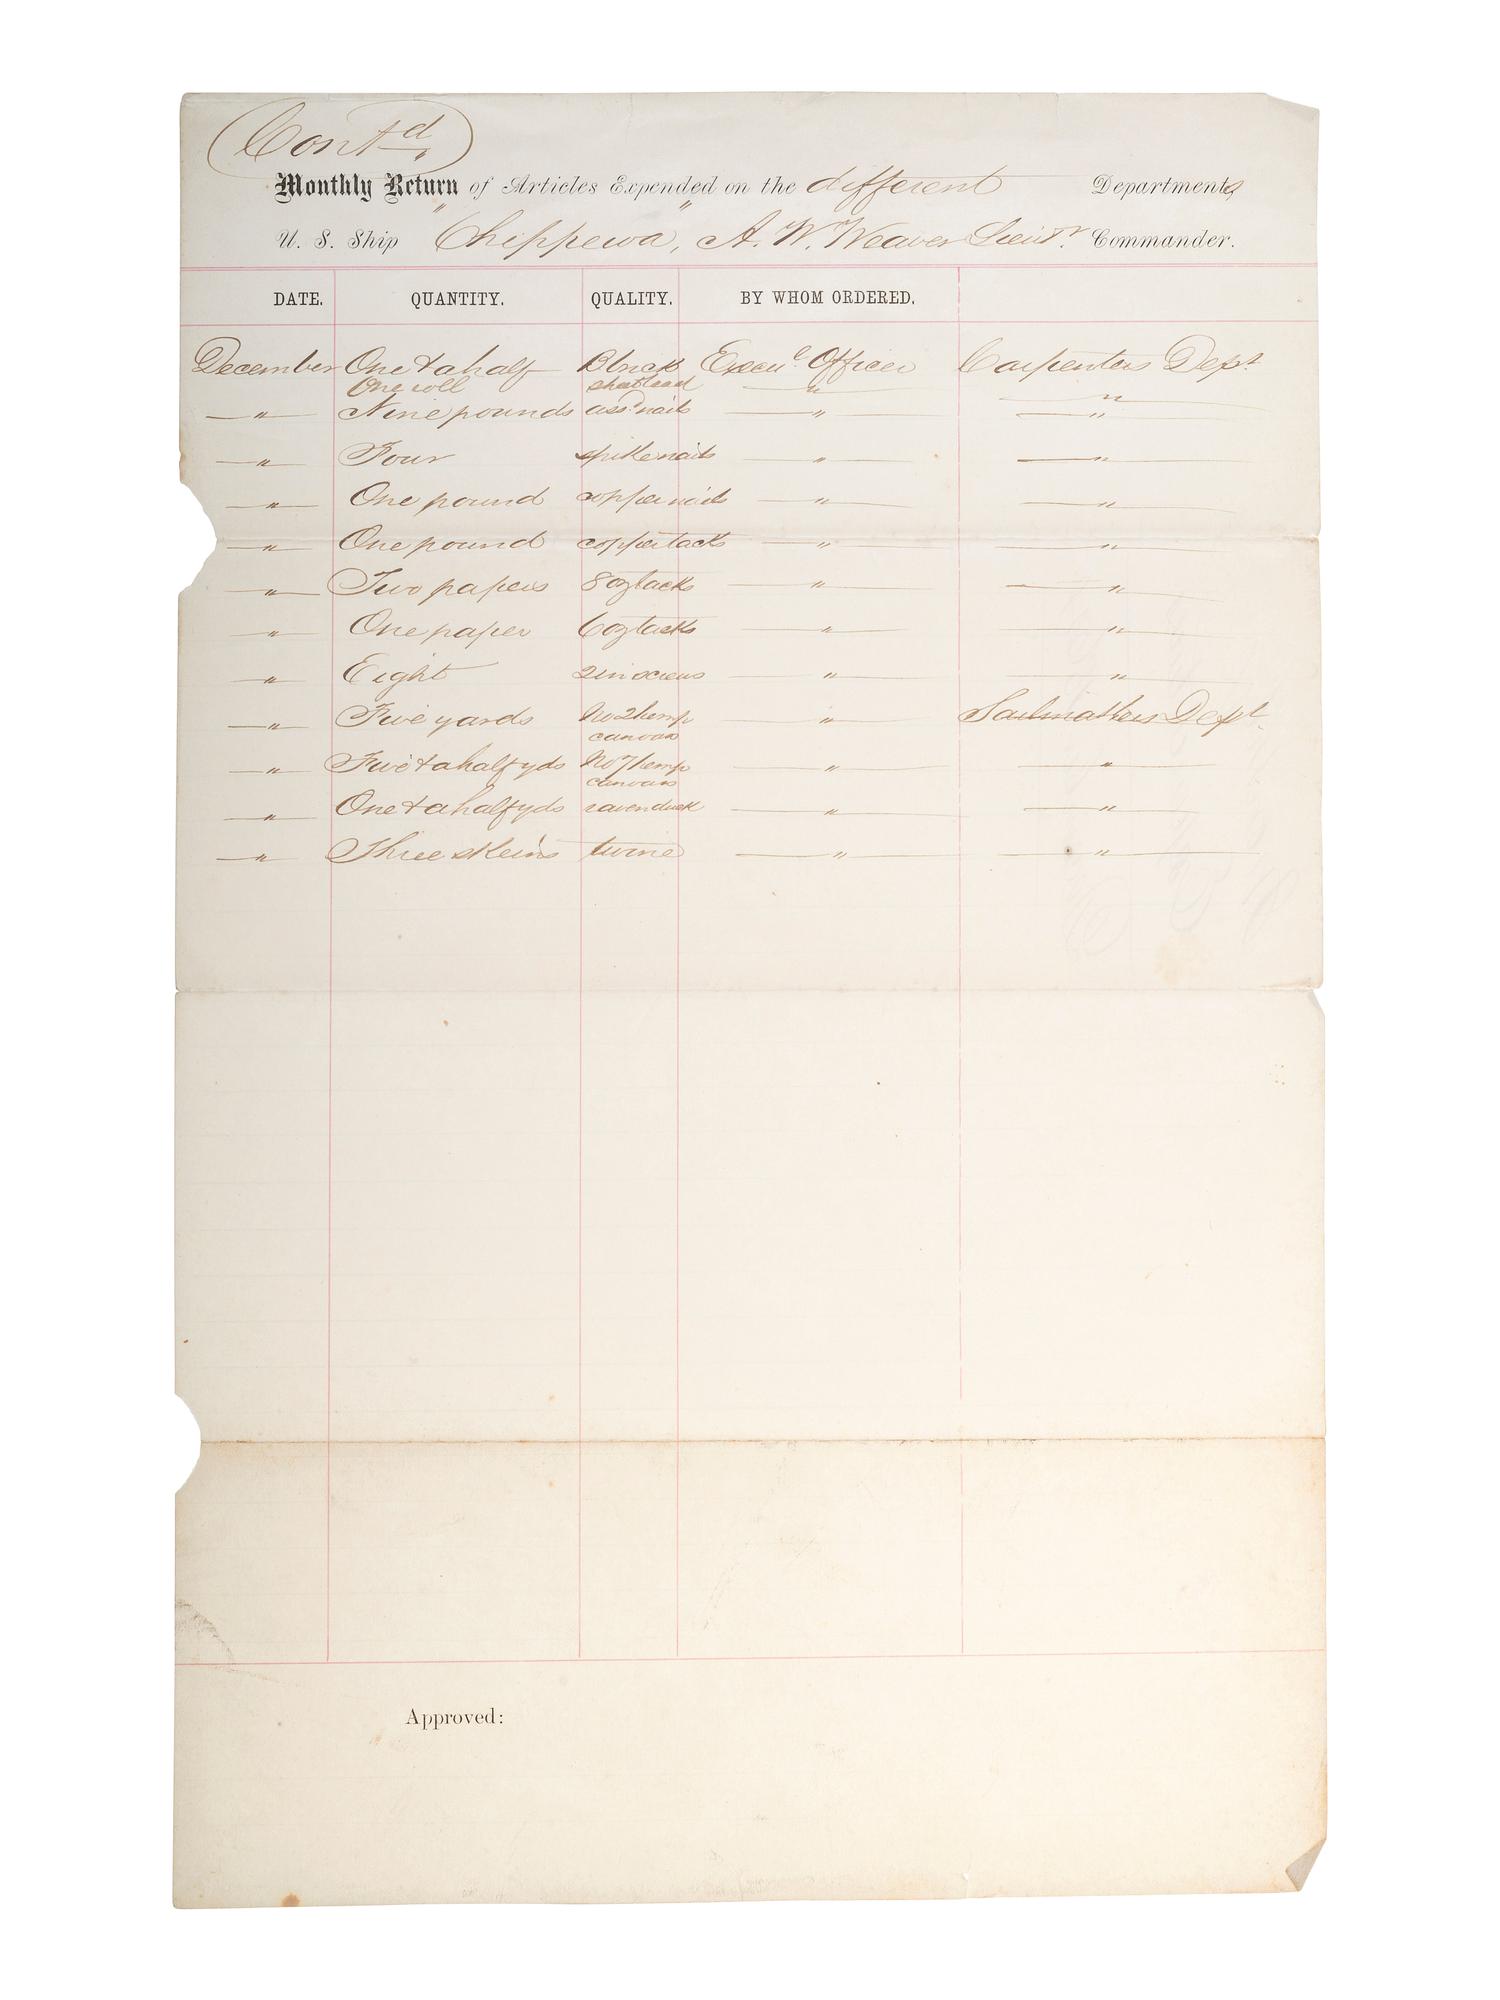 Contd
Monthly Return of Articles Expended on the different Departments
U. S. Ship "Chippewa," A. W. Weaver Lieutr. Commander.
DATE. QUANTITY. QUALITY. BY WHOM ORDERED.
December One & a half Block Execu. Officer Carpenters Dept
One roll sheet lead " "
" Nine pounds assd nails " "
" Four spike nails " "
" One pound copper nails " "
" One pound copper tacks " "
" Two papers 8 oz tacks " "
" One paper 6 oz tacks " "
" Eight 2 in screws " "
" Five yards No 2 hemp " Sailmakers Dept.
canvas
" Five & a half yds No 7 hemp " "
canvas
" One & a half yds ravenduck " "
" Three skeins twine " "
Approved: